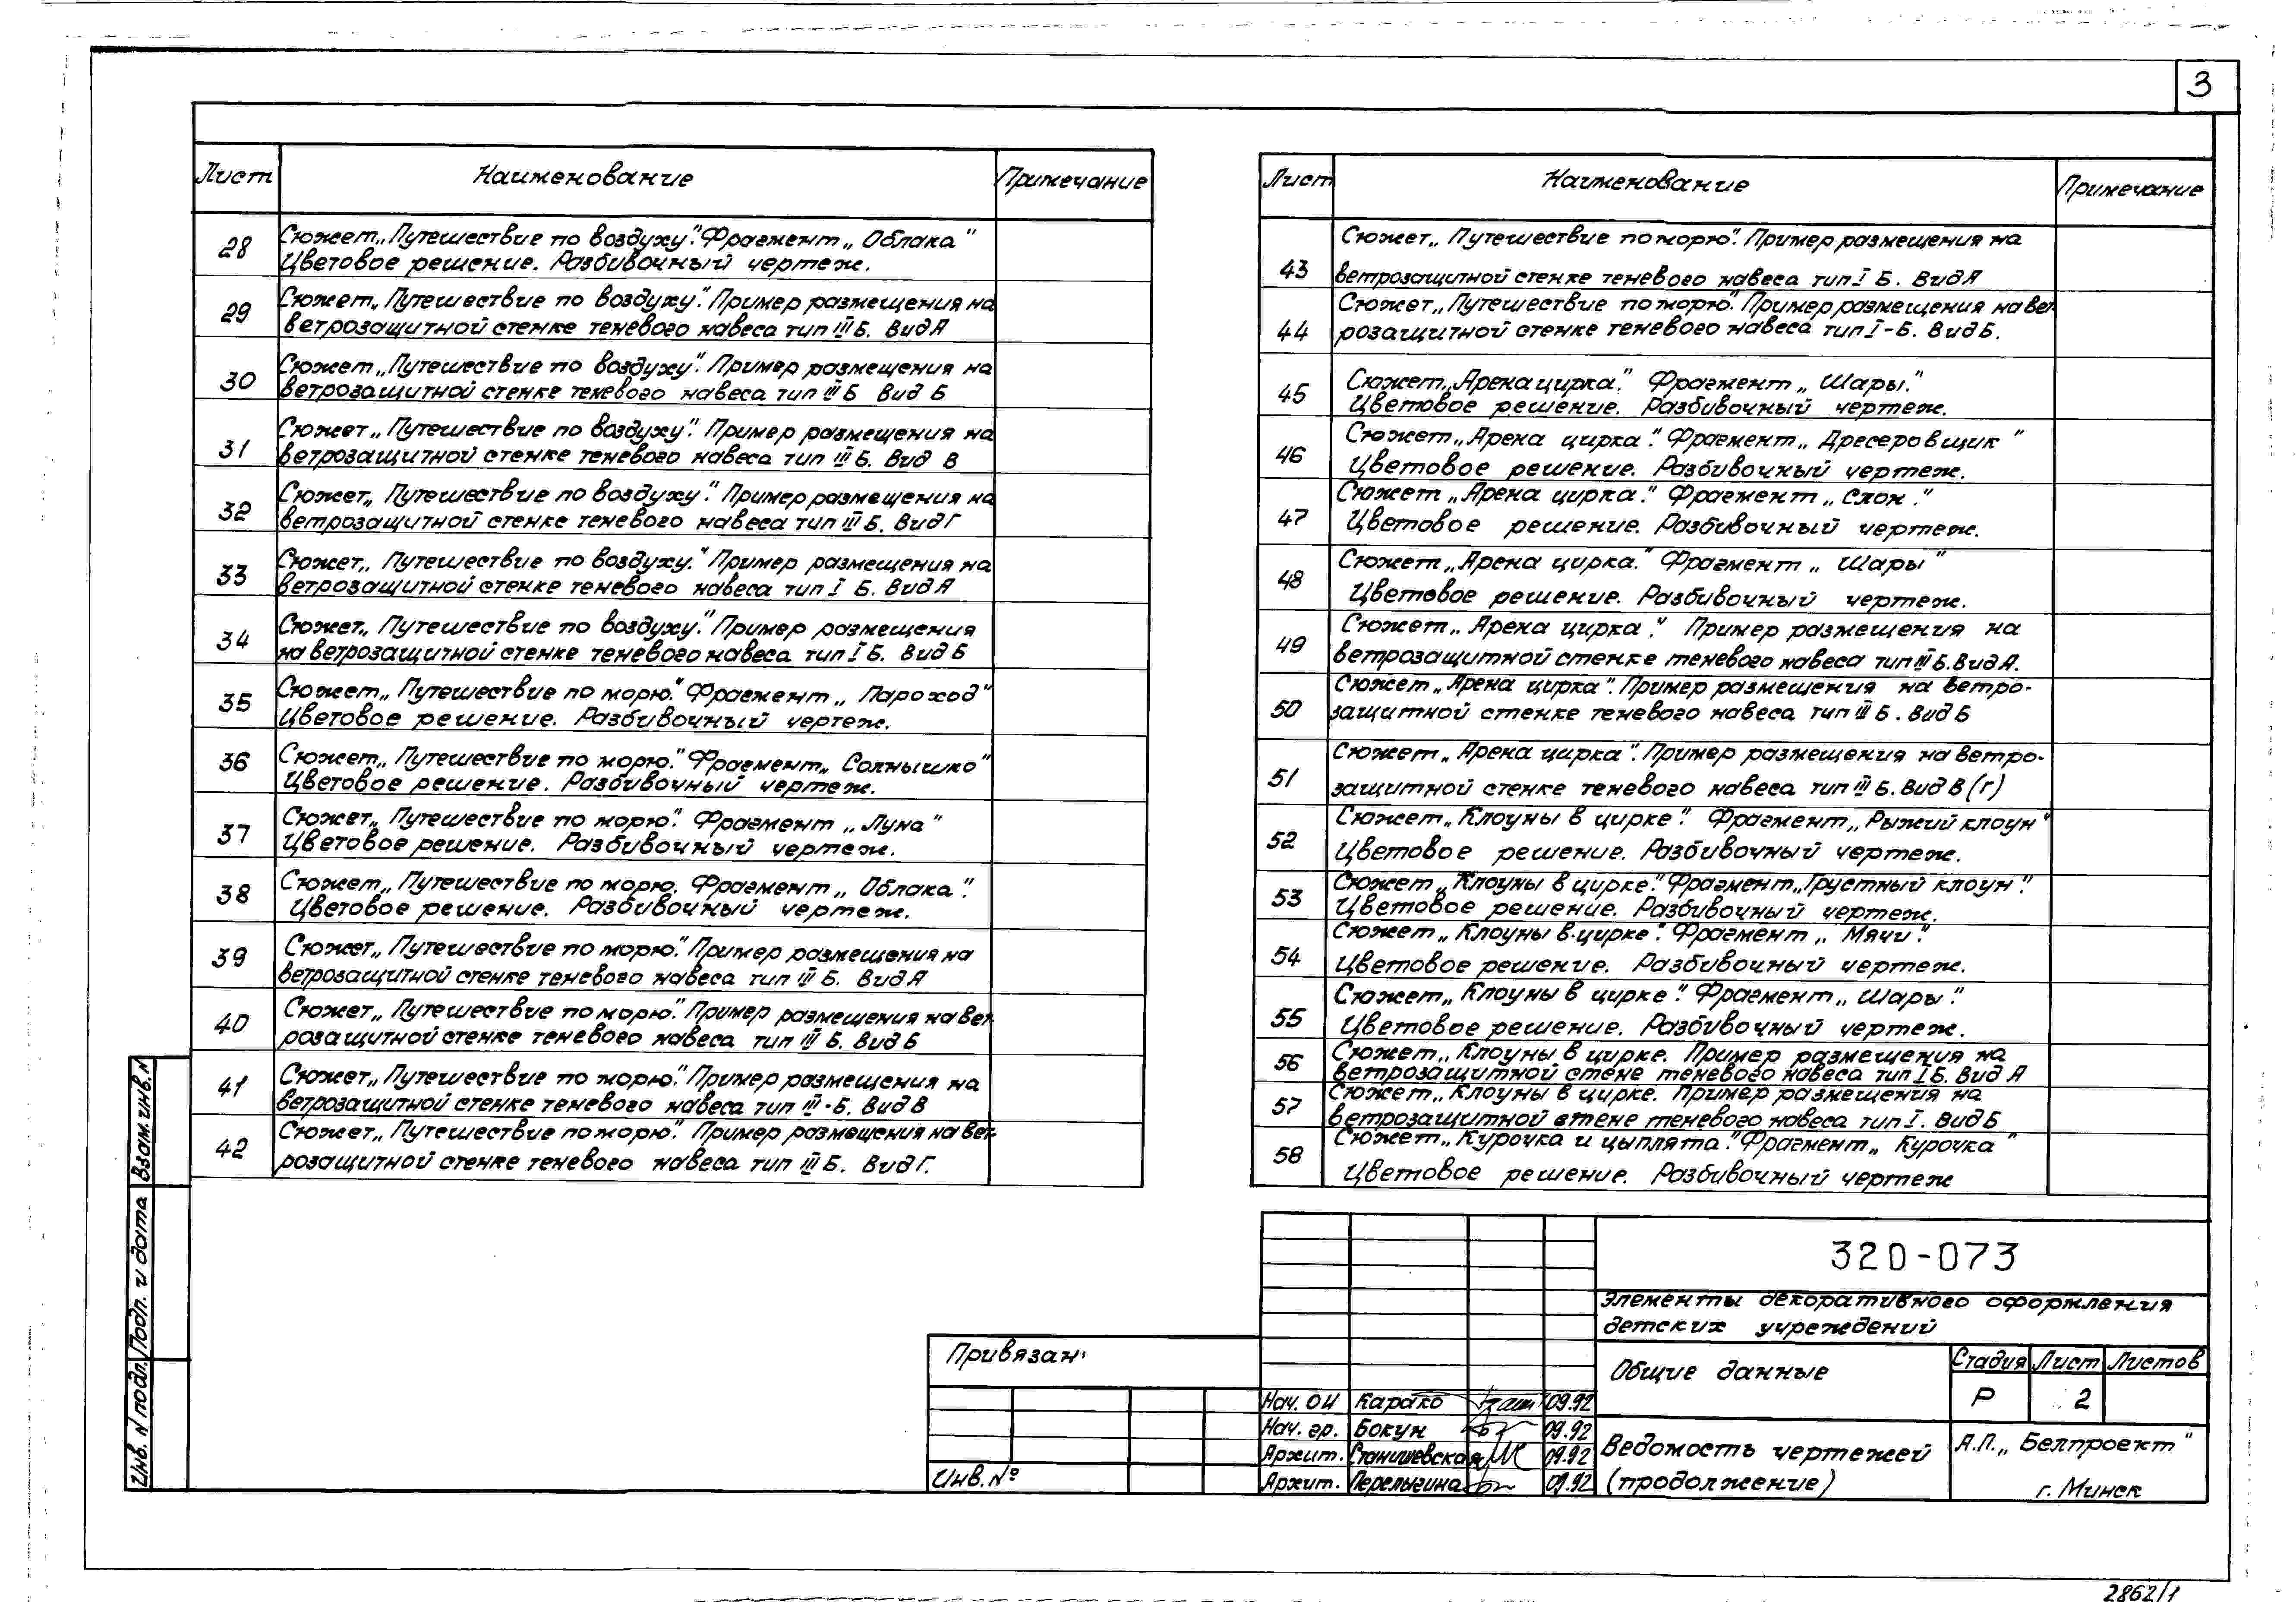 3
Лист Наименование Примечание
28 Сюжет „Путешествие по воздуху". Фрагмент „Облака"
Цветовое решение. Разбивочный чертеж.
29 Сюжет „Путешествие по воздуху". Пример размещения на
ветрозащитной стенке теневого навеса тип III Б. Вид А
30 Сюжет „Путешествие по воздуху". Пример размещения на
ветрозащитной стенке теневого навеса тип III Б Вид Б
31 Сюжет „Путешествие по воздуху". Пример размещения на
ветрозащитной стенке теневого навеса тип III Б. Вид В
32 Сюжет „Путешествие по воздуху". Пример размещения на
ветрозащитной стенке теневого навеса тип III Б. Вид Г
33 Сюжет „Путешествие по воздуху". Пример размещения на
ветрозащитной стенке теневого навеса тип I Б. Вид А
34 Сюжет „Путешествие по воздуху". Пример размещения
на ветрозащитной стенке теневого навеса тип I Б. Вид Б
35 Сюжет „Путешествие по морю". Фрагмент „Пароход"
Цветовое решение. Разбивочный чертеж.
36 Сюжет „Путешествие по морю". Фрагмент „Солнышко"
Цветовое решение. Разбивочный чертеж.
37 Сюжет „Путешествие по морю". Фрагмент „Луна"
Цветовое решение. Разбивочный чертеж.
38 Сюжет „Путешествие по морю. Фрагмент „Облака".
Цветовое решение. Разбивочный чертеж.
39 Сюжет „Путешествие по морю". Пример размещения на
ветрозащитной стенке теневого навеса тип III Б. Вид А
40 Сюжет „Путешествие по морю". Пример размещения на вет-
розащитной стенке теневого навеса тип III Б. Вид Б
41 Сюжет „Путешествие по морю". Пример размещения на
ветрозащитной стенке теневого навеса тип III-Б. Вид В
42 Сюжет „Путешествие по морю". Пример размещения на вет-
розащитной стенке теневого навеса тип III Б. Вид Г.
Лист Наименование Примечание
43 Сюжет „Путешествие по морю". Пример размещения на
ветрозащитной стенке теневого навеса тип I Б. Вид А
44 Сюжет „Путешествие по морю". Пример размещения на вет-
розащитной стенке теневого навеса тип I-Б. Вид Б.
45 Сюжет „Арена цирка". Фрагмент „Шары."
Цветовое решение. Разбивочный чертеж.
46 Сюжет „Арена цирка". Фрагмент „Дресеровщик"
Цветовое решение. Разбивочный чертеж.
47 Сюжет „Арена цирка." Фрагмент „Слон."
Цветовое решение. Разбивочный чертеж.
48 Сюжет „Арена цирка." Фрагмент „Шары"
Цветовое решение. Разбивочный чертеж.
49 Сюжет „Арена цирка". Пример размещения на
ветрозащитной стенке теневого навеса тип III Б. Вид А.
50 Сюжет „Арена цирка". Пример размещения на ветро-
защитной стенке теневого навеса тип III Б. Вид Б
51 Сюжет „Арена цирка". Пример размещения на ветро-
защитной стенке теневого навеса тип III Б. Вид В (Г)
52 Сюжет „Клоуны в цирке". Фрагмент „Рыжий клоун"
Цветовое решение. Разбивочный чертеж.
53 Сюжет „Клоуны в цирке". Фрагмент „Грустный клоун".
Цветовое решение. Разбивочный чертеж.
54 Сюжет „Клоуны в цирке". Фрагмент „Мячи".
Цветовое решение. Разбивочный чертеж.
55 Сюжет „Клоуны в цирке". Фрагмент „Шары".
Цветовое решение. Разбивочный чертеж.
56 Сюжет „Клоуны в цирке. Пример размещения на
ветрозащитной стене теневого навеса тип I Б. Вид А
57 Сюжет „Клоуны в цирке. Пример размещения на
ветрозащитной стене теневого навеса тип I. Вид Б
58 Сюжет „Курочка и цыплята". Фрагмент „Курочка"
Цветовое решение. Разбивочный чертеж
Взам. инв. N
Подп. и дата
Инв. N подл.
Привязан:
Инв. №
Нач. ОИ Карако 09.92
Нач. гр. Бокун 09.92
Архит. Станишевская 09.92
Архит. Перелыгина 09.92
320-073
Элементы декоративного оформления
детских учреждений
Общие данные
Стадия Лист Листов
Р 2
Ведомость чертежей
(продолжение)
А.П. „Белпроект"
г. Минск
2862/1